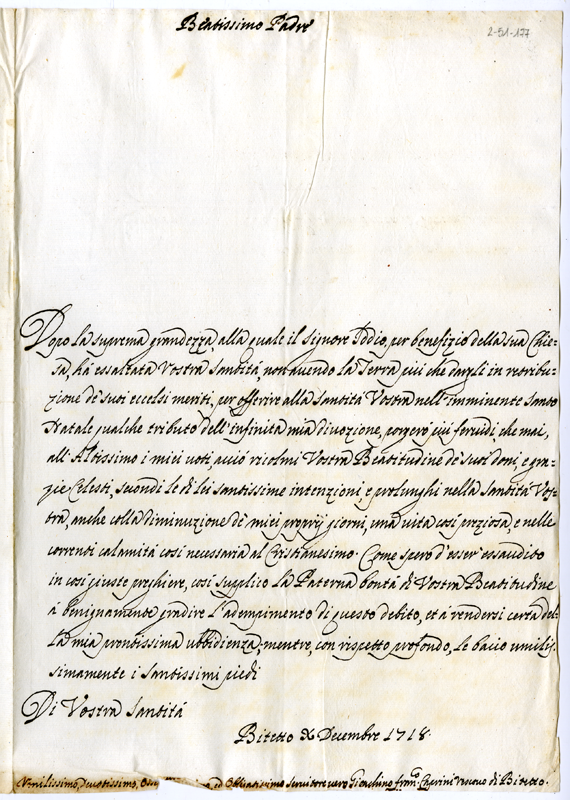 Beatissimo Padre
2-51-177
Dopo la suprema grandezza, alla quale il Signore Iddio, per benefizio della sua Chie-
sa, hà essaltata Vostra Santità, non avendo la Terra più che dargli in retribu-
zione de' suoi eccelsi meriti, per offerire alla Santità Vostra nell'imminente Santo
Natale qualche tributo dell'infinita mia divozione, porgerò più fervidi, che mai,
all'Altissimo i miei voti, acciò ricolmi Vostra Beatitudine de' suoi doni, e gra-
zie Celesti, secondi le di lei santissime intenzioni, e prolunghi nella Santità Vos-
tra, anche colla diminuzione de' miei proprij giorni, una vita così preziosa, e nelle
correnti calamità così necessaria al Cristianesimo. Come spero d'esser essaudito
in così giuste preghiere, così supplico la Paterna bontà di Vostra Beatitudine
à benignamente gradire l'adempimento di questo debito, et à rendersi certa del-
la mia prontissima ubbidienza; mentre, con rispetto profondo, le bacio umilis-
simamente i Santissimi piedi
Di Vostra Santità
Bitetto X Decembre 1718.
Umilissimo, Devotissimo, ed Obligatissimo servitore vero Vescovo di Bitetto.